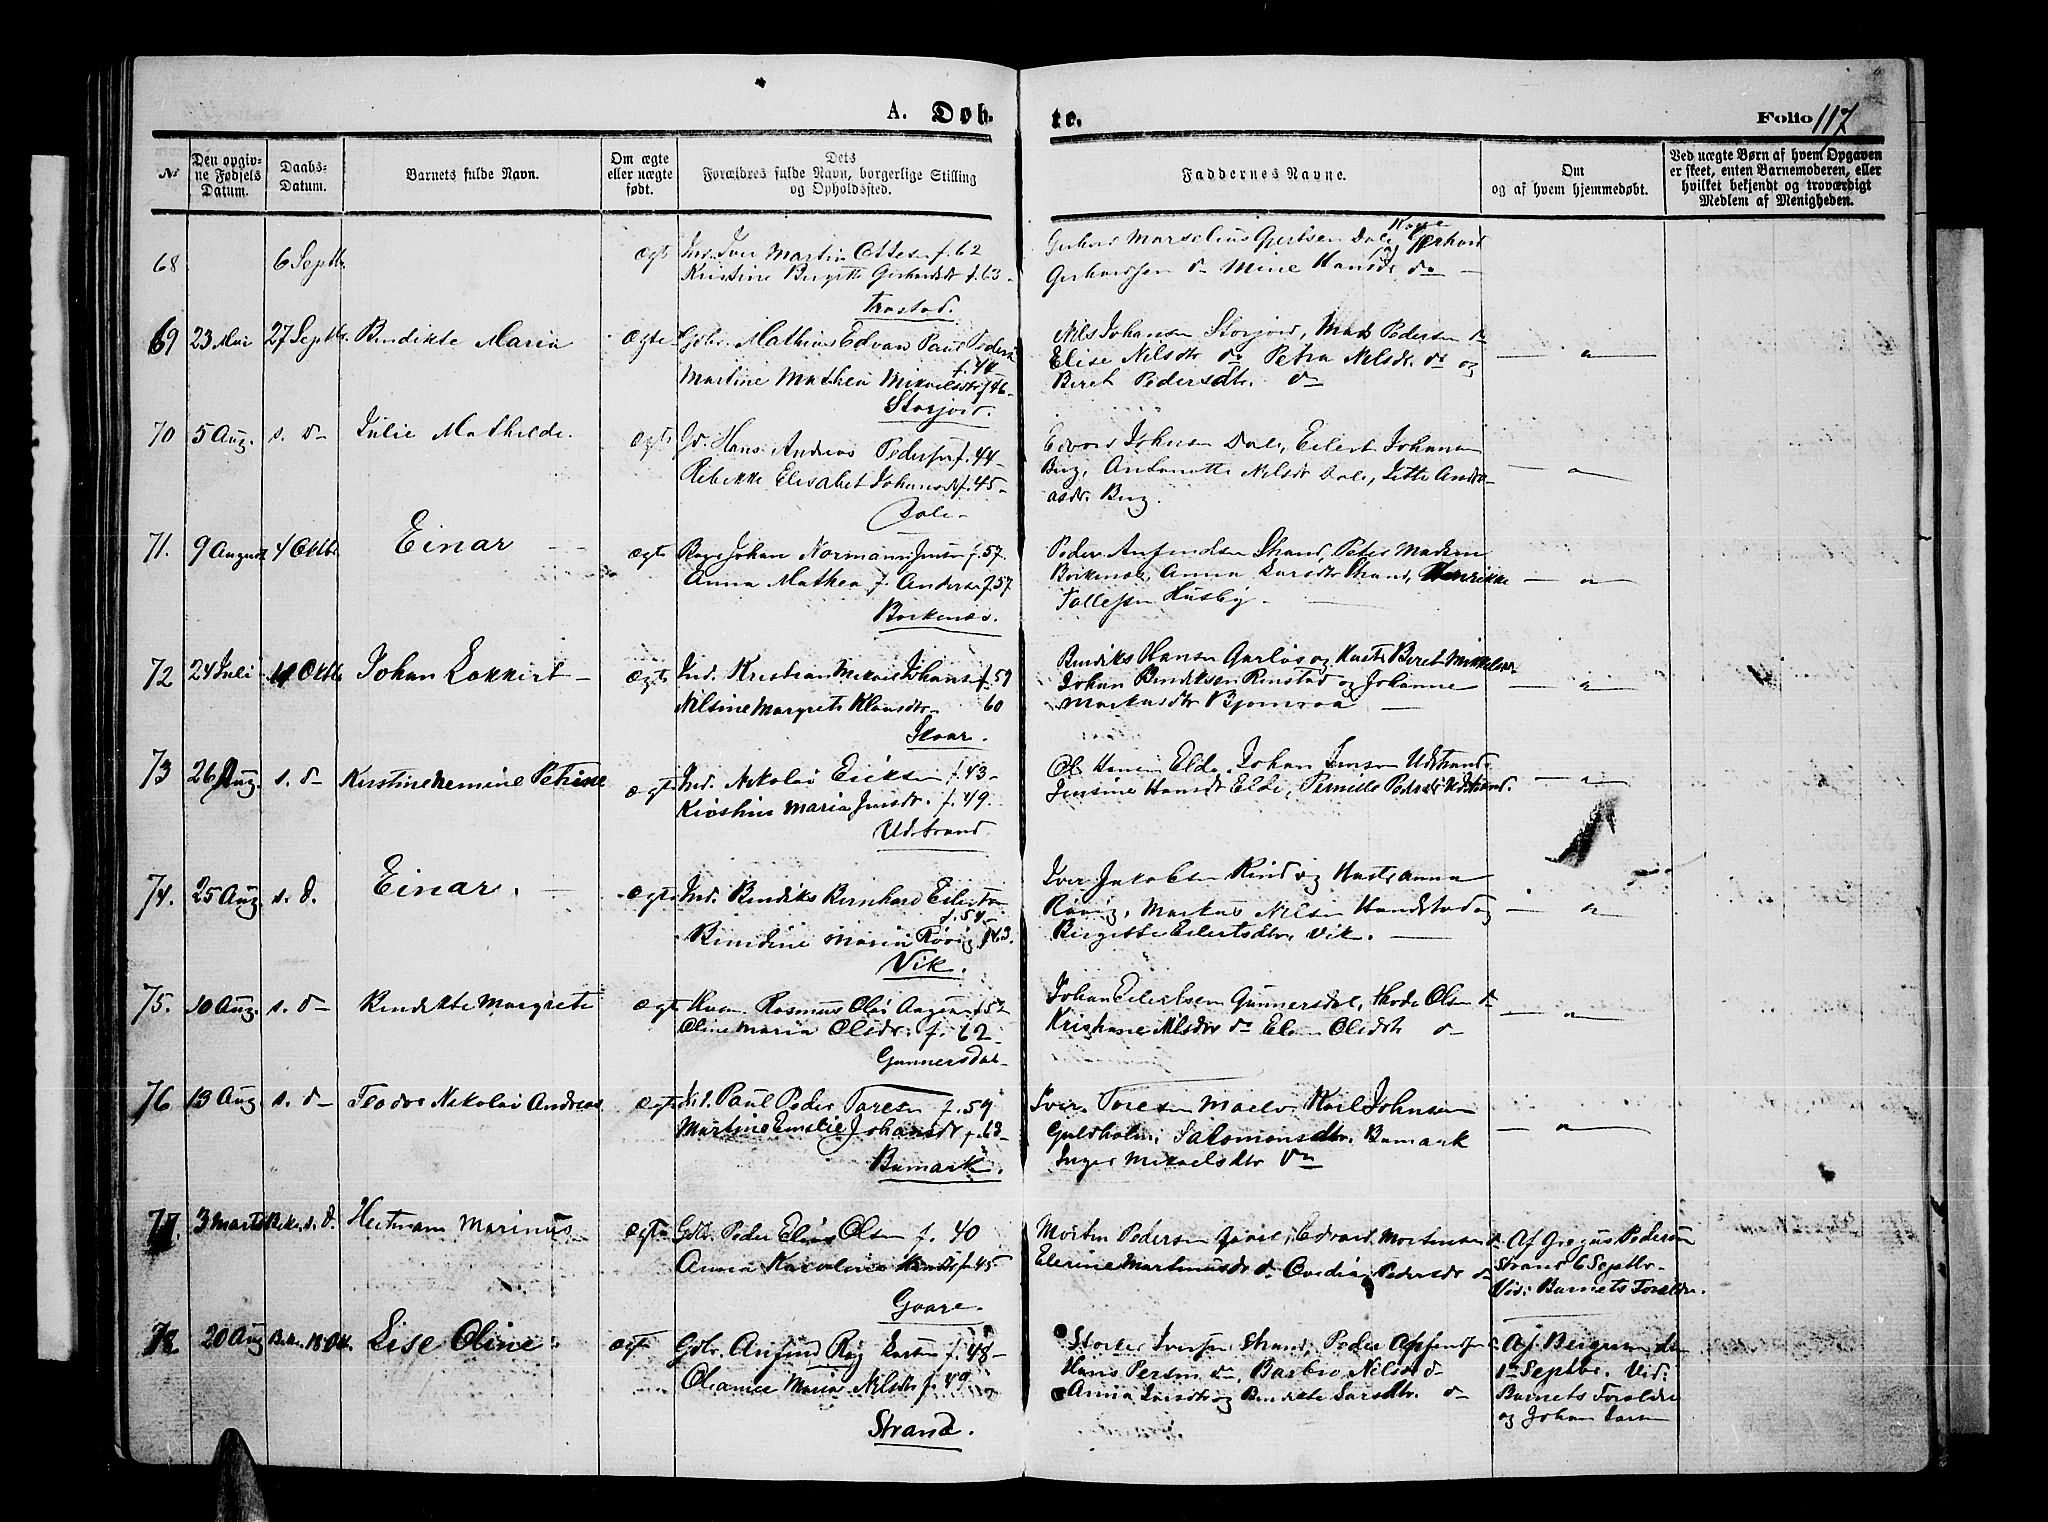 A. Døb- te.
Folio 117
№
Den opgiv-
ne Fødsels
Datum.
Daabs-
Datum.
Barnets fulde Navn.
Om ægte
eller uægte
født.
Dets
Forældres fulde Navn, borgerlige Stilling
og Opholdssted.
Faddernes Navne.
Om
og af hvem hjemmedøbt.
Ved uægte Børn af hvem Opgaven
er skeet, enten Barnemoderen, eller
hvilket bekjendt og troværdigt
Medlem af Menigheden.
68 6 Septb. ægte Ind. Iver Martin Ottesen f. 62
Kristine Birgitte Gerhardsdr f. 63
Trastad.
Gerhard Marselius Gertsen Dale, Gerhard
Gerhardsen do Mine Hansdr do
69 23 Mai 27 Septb. Bendikte Maria ægte Gdbr. Mathias Edvar Paul Peders
f. 44
Martine Mathea Mikaelsdtr f. 46
Storjord.
Nils Johansen Storjord, Mads Pedersen do
Elise Nilsdtr do Petra Nilsdr. do og
Beret Pedersdtr. do
70 5 Aug. s. d. Julie Mathilde. ægte Gdr. Hans Andreas Pedersen f. 44
Rebekke Elisabet Johansdr f. 45
Dale
Edvard Johnsen Dale, Eilert Johansen
Berg, Antonette Nilsdr Dale, Jette Andre-
asdr. Berg.
71. 9 August 4 Oktb. Einar ægte Johan Normann Jensen f. 57.
Anna Mathea f. Anderse f. 57
Borkenæs.
Peder Anfindsen Strand, Peter Madsen
Borkenæs, Anna Larsdtr Strand, Henrikke
Tollefsen Husby.
72 24 Juli 11 Oktb. Johan Lokkert ægte Ind. Kristian Mikael Johans f. 59
Nilsine Margrete Klausdtr 60
Bendiks Hansen og Hustr. Beret Mikkelsdr
Johan Bendiksen Rinstad og Johanne
Markusdtr Bjornraa
73 26 Aug. s. d. Kirstine Nemine Petrine ægte Ind. Nikolai Eriksen f. 43
Kirstine Maria Jensdr. f. 49.
Udstrand.
Ole Hansen Elde, Johan Jensen Udstrand
Jensine Hansdr Elde, Pernille Pedersdr Udstrand.
74. 25 Aug s. d. Einar. ægte Ind. Bendiks Bernhard Eilertsen
f. 54
Bendine Maria Røvig f. 63.
Vik.
Iver Jakobsen Rind og Hustr. Anna
Røvig, Markus Nilsen Handstad og
Birgitte Eilertsdtr. Vik.
75. 10 Aug. s. d. Bendikte Margrete ægte Rasmus Olai Aagesen f. 52
Oline Maria Olsdr. f. 62
Gunnersdal
Johan Eilertsen Gunnersdal, Olsen do
Kristiane Nilsdtr do Elen Olsdtr do
76 13 Aug. s. d. Teodor Nikolai Andreas ægte Ind. Paul Peder Toresen f. 59
Martine Emelie Johansdr f. 63
Bumark.
Iver Toresen Karl Johnsen
Guldholm, Salomonsdtr. Bumark
Inger Mikaelsdtr do
77. 3 Marts Bek. s. d. Heitmann Marinus ægte Gdbr. Peder Elias Olsen f. 40
Anna Karoline f. 45
Gaare.
Morten Pedersen Gaare, Edvard Mortensen do
Elerine Martinusdr do Ovedia Pedersdr do
Af Gregus Pedersen
Strand 6 Septbr.
Vid: Barnets Forældre.
78. 20 Aug Bek. 18 Okt. Lise Oline. ægte Gdbr. Anfind Røg Larsen f. 48
Oleanna Maria Nilsdtr f. 49
Strand.
Storker Iversen Strand, Peder Anfinsen
Hans Persen do, Barbro Nilsdr do
Anna Larsdtr og Bendikte Larsdtr. do
Af Birgersen den
1n Septbr. Vid:
Barnets Forældre
og Johan Larsen